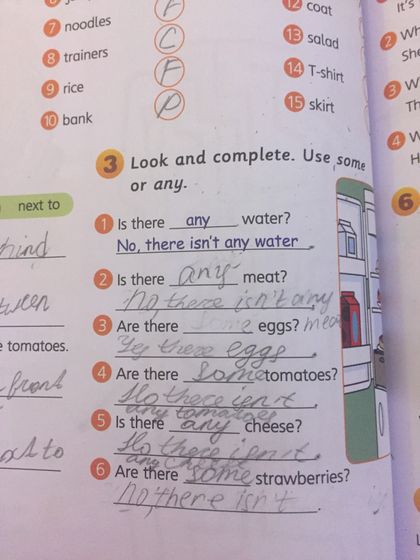 7 noodles C
8 trainers F
9 rice P
10 bank
12 coat
13 salad
14 T-shirt
15 skirt
3 Look and complete. Use some
or any.
next to
1 Is there any water?
No, there isn't any water.
2 Is there any meat?
No, there isn't any
meat
3 Are there some eggs?
Yes there eggs.
4 Are there some tomatoes?
No there isn't
any tomatoes.
5 Is there any cheese?
No there isn't
any cheese.
6 Are there some strawberries?
No, there isn't.
tomatoes.
front
6